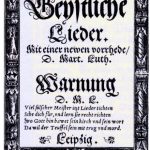 Geystliche
Lieder.
Mit einer newen vorrhede/
D. Mart. Luth.
Warnung
D. M. L.
Viel falscher Meister itzt Lieder tichten
Sihe dich für/ vnd lern sie recht richten
Wo Gott hin bawet sein kirch vnd sein wort
Da wil der Teuffel sein mit trug vnd mord.
Leipzig.